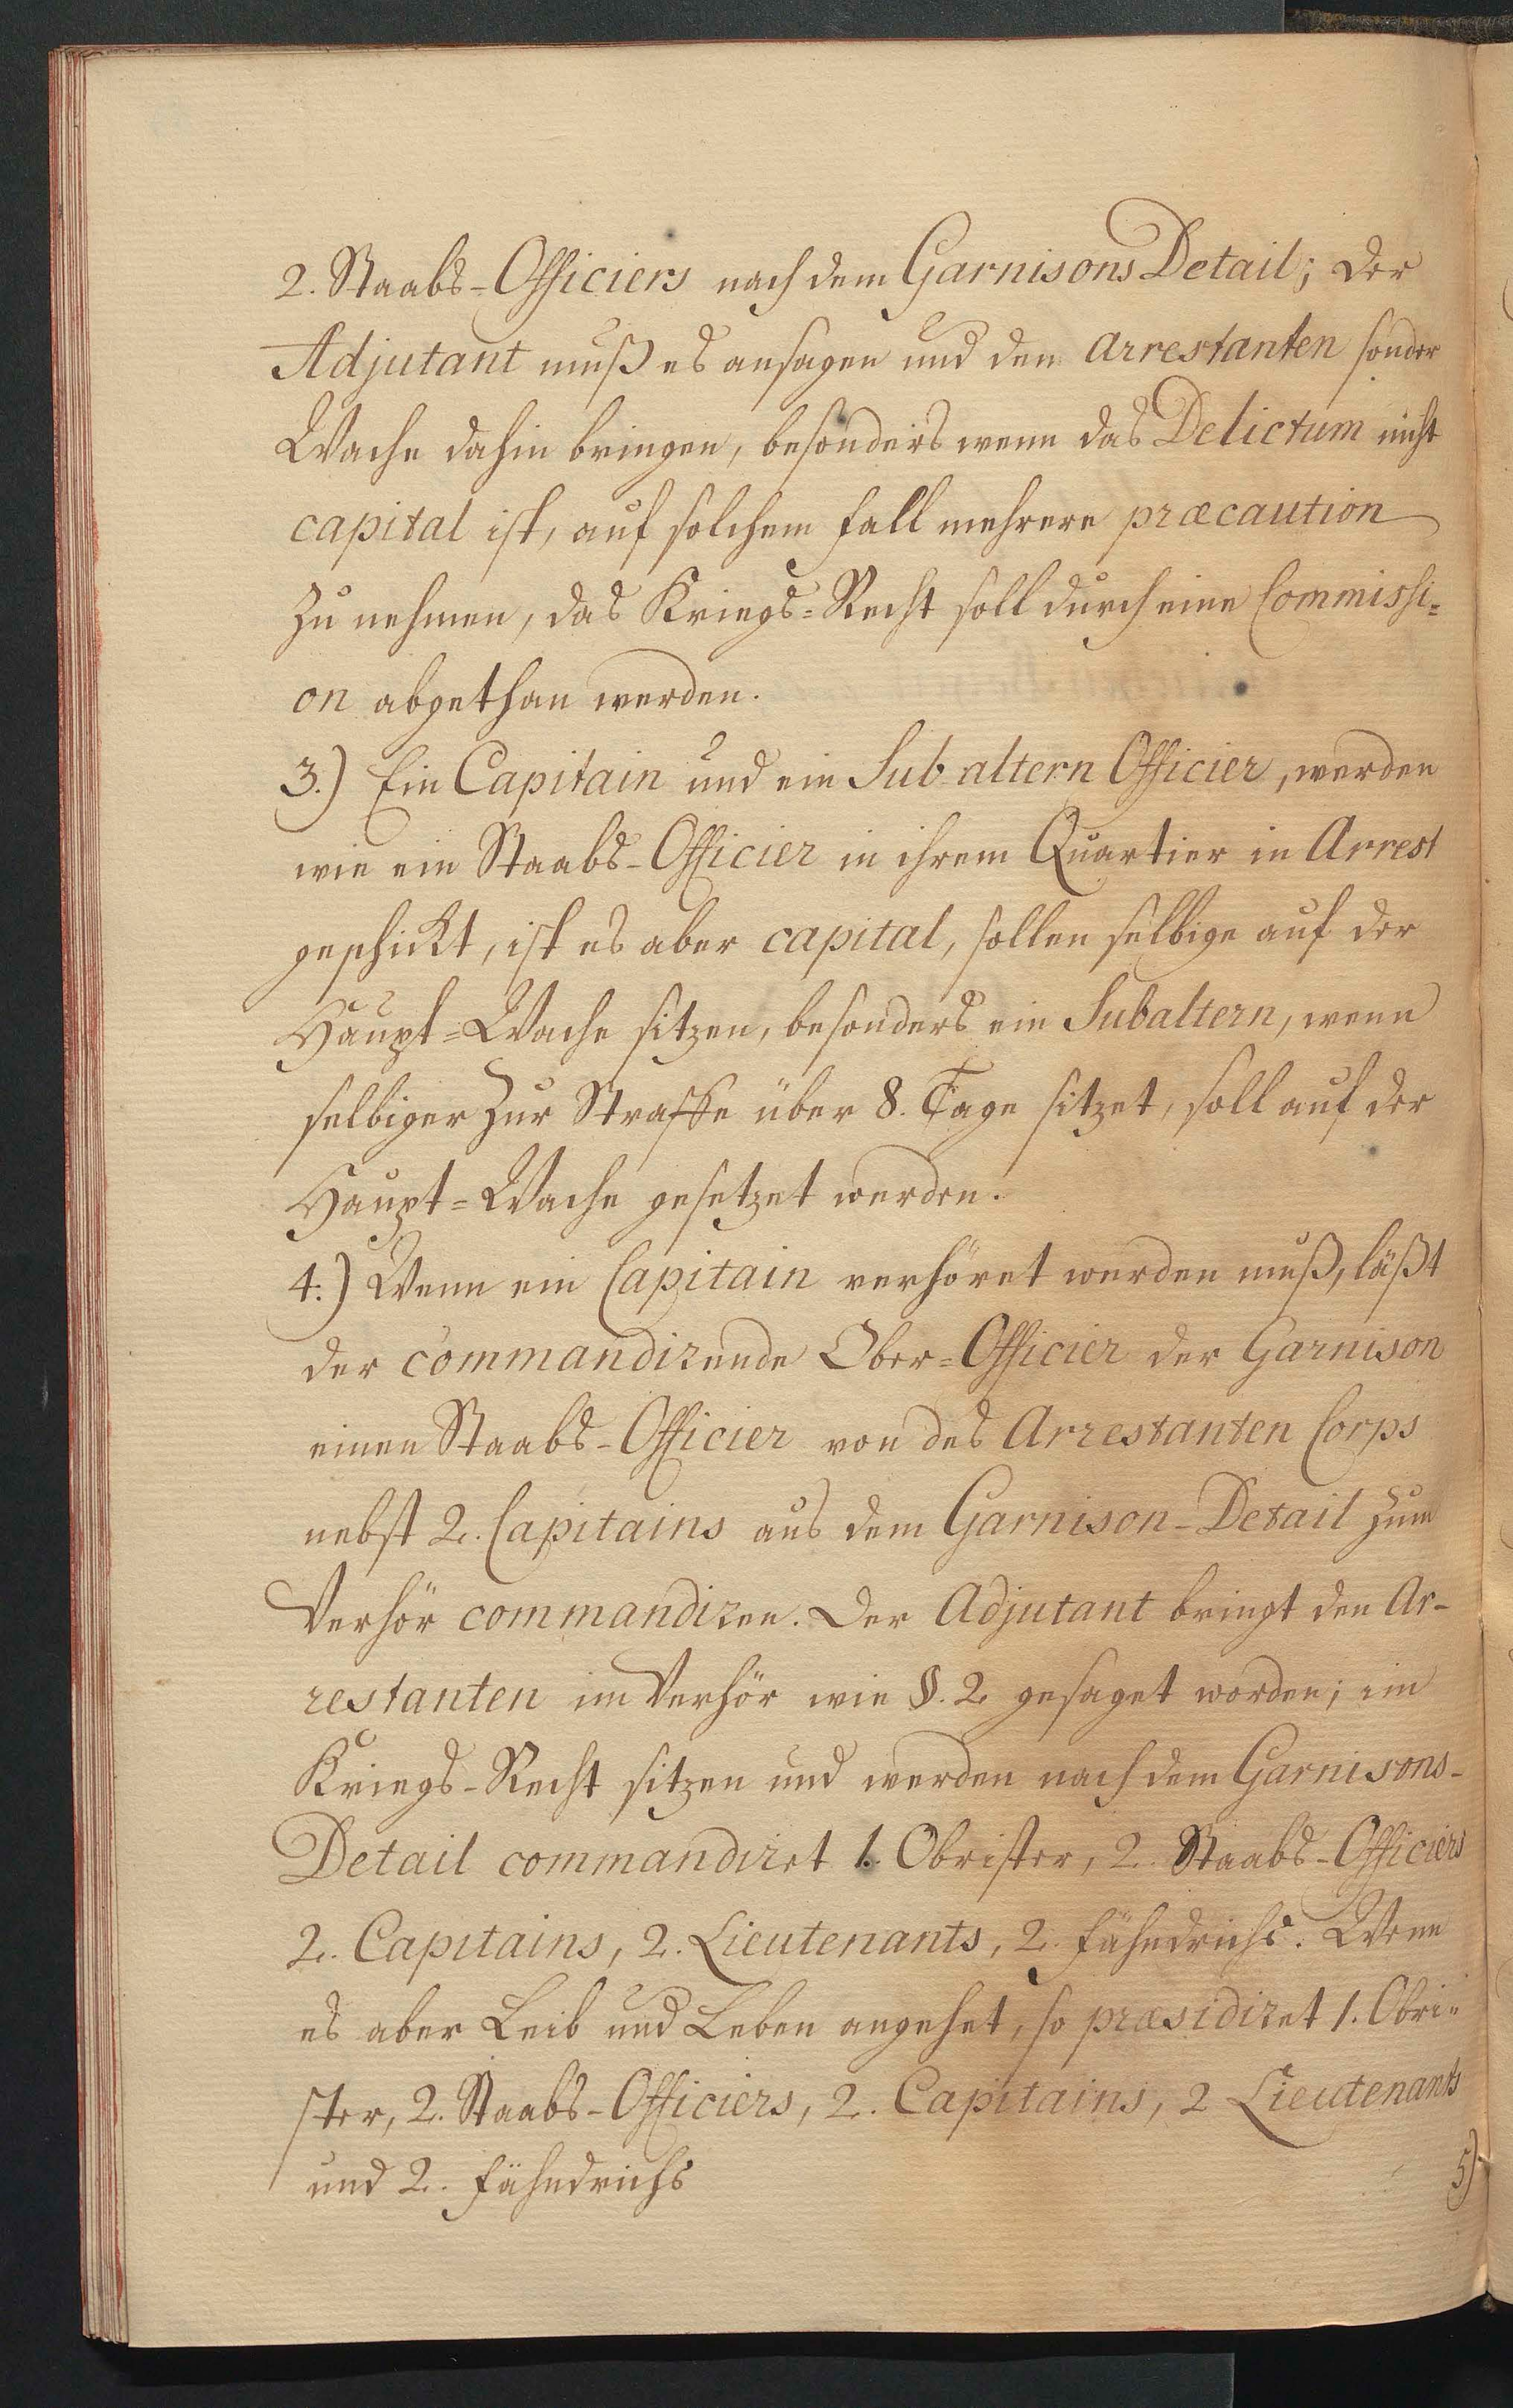 2. Staabs-Officiers nach dem Garnisons Detail; der
Adjutant muß es ansagen und den arrestanten sonder
Wache dahin bringen, besonders wenn das Delictum nicht
capital ist, auf solchem fall mehrere præcaution
zu nehmen, das Kriegs=Recht soll durch eine Commissi=
on abgethan werden.
3.) Ein Capitain und ein Sub altern Officier, werden
wie ein Staabs-Officier in ihrem Quartier in Arrest
geschickt, ist es aber capital, sollen selbige auf der
Haupt=Wache sitzen, besonders ein Subaltern, wenn
selbiger zur Straffe über 8. Tage sitzet, soll auf der
Haupt=Wache gesetzet werden.
4.) Wenn ein Capitain verhöret werden muß, läßt
der commandirende Ober=Officier der Garnison
einen Staabs-Officier von des Arrestanten Corps
nebst 2. Capitains aus dem Garnison-Detail zum
Verhör commandiren. Der Adjutant bringt den Ar-
restanten im Verhör wie §. 2 gesaget worden; im
Kriegs-Recht sitzen und werden nach dem Garnisons-
Detail commandiret 1. Obrister, 2. Staabs-Officiers
2. Capitains, 2. Lieutenants, 2. fähndrichs. Wenn
es aber Leib und Leben angehet, so præsidiret 1. Obri=
ster, 2. Staabs-Officiers, 2. Capitains, 2 Lieutenants
und 2. fähndrichs
5)